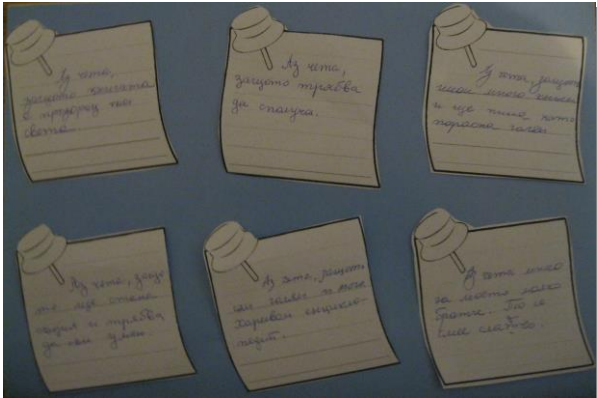 Аз чета,
защото книгата
е прозорец към
света.
Аз чета,
защото трябва
да сполуча.
Аз чета, защото
имам много книги
и ще пиша, като
порасна голям.
Аз чета, защо
то ще стана
и трябва
да съм умен.
Аз чета, защото
съм голям и мога
Харесвам енцикло-
педии.
Аз чета
на моето малко
братче. То се
смее сладко.